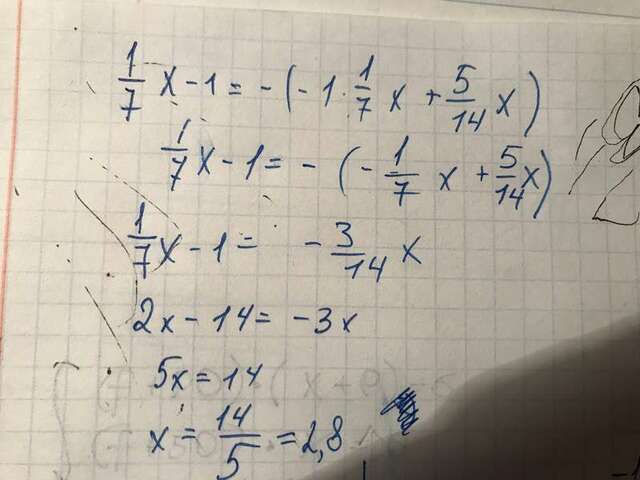 1/7 x - 1 = - (-1 · 1/7 x + 5/14 x)
1/7 x - 1 = - (- 1/7 x + 5/14 x)
1/7 x - 1 = - 3/14 x
2x - 14 = -3x
5x = 14
x = 14/5 = 2,8